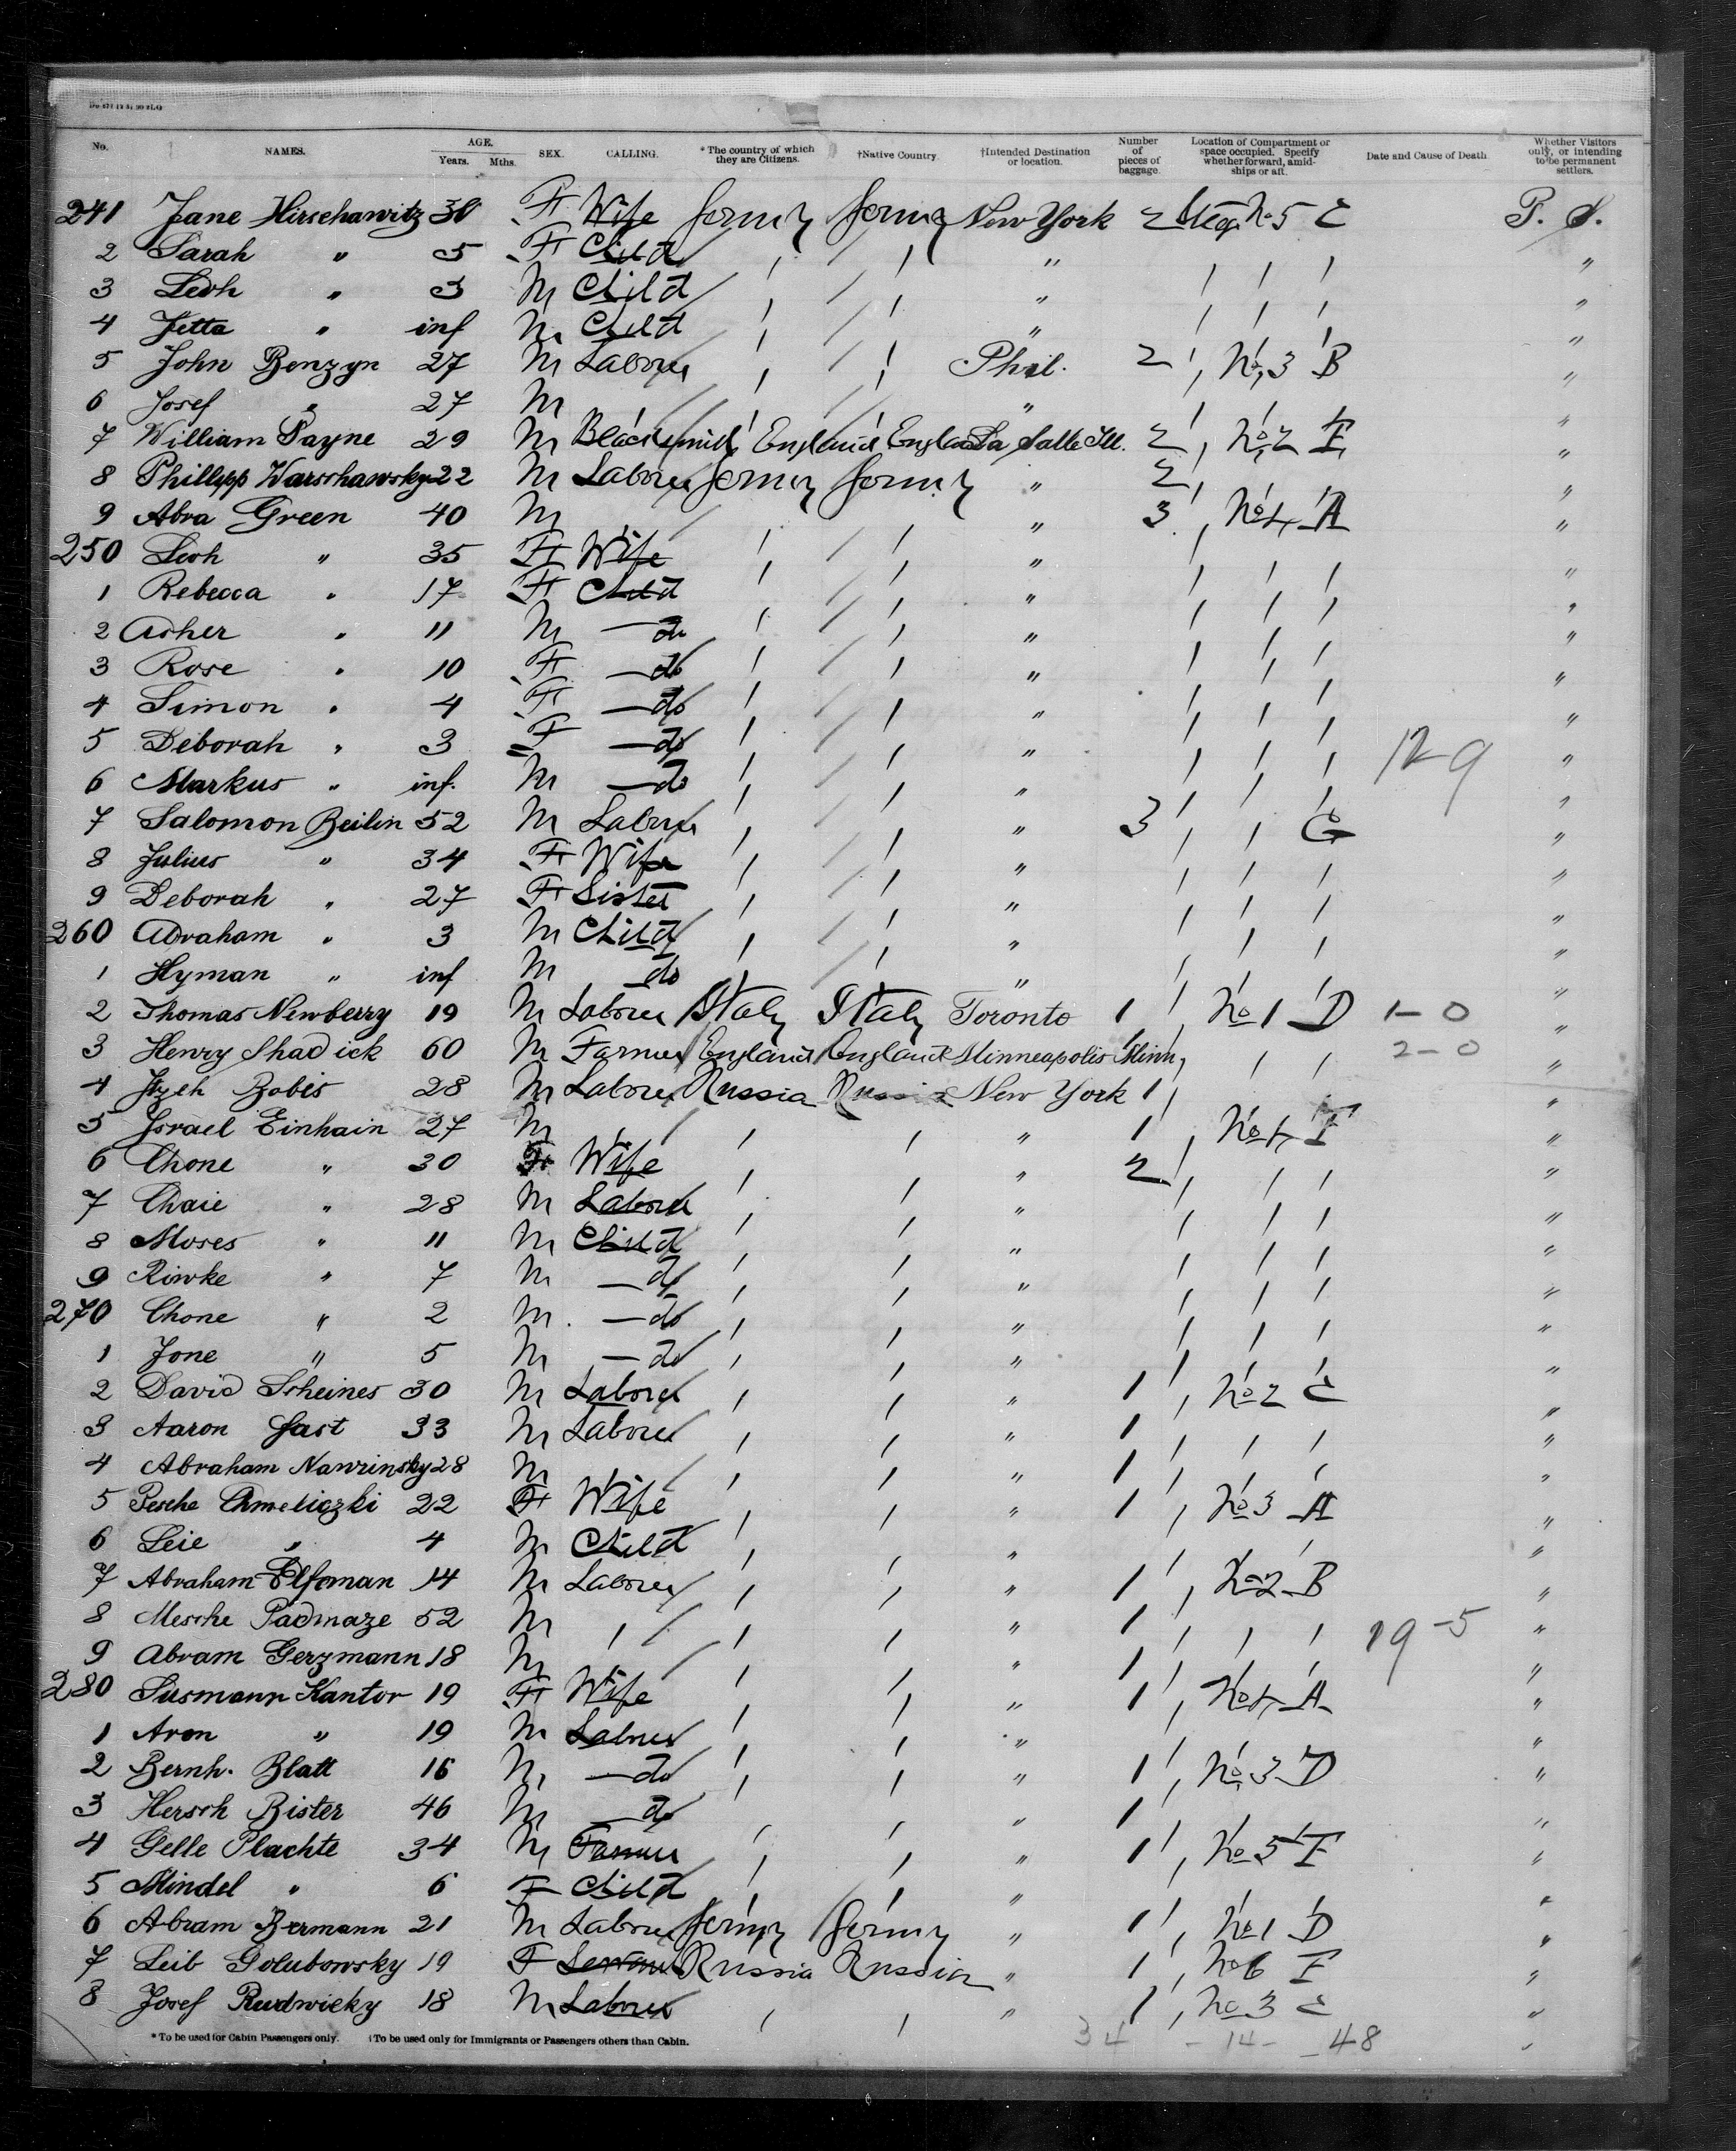 No. NAMES. AGE. Years. Mths. SEX. CALLING. *The country of which they are Citizens. †Native Country. †Intended Destination or location. Number of pieces of baggage. Location of Compartment or space occupied. Specify whether forward, amidships or aft. Date and Cause of Death. Whether Visitors only, or intending to be permanent settlers.
241 Jane Hirschawitz 30 F Wife Germy Germy New York 2 Steg. No 5 C P. S.
2 Sarah " 5 F Child / / " / / / "
3 Leoh " 3 M Child / / " / / / "
4 Jetta " inf M Child / / " / / / "
5 John Benzyn 27 M Laborer / / Phil. 2 / No 3 B "
6 Josef " 27 M / / / " "
7 William Payne 29 M Blacksmith England England La Salle Ill. 2 / No 2 F "
8 Phillipp Warschawsky 22 M Laborer Germy Germy " 2 "
9 Abra Green 40 M " 3 / No 4 A "
250 Leoh " 35 F Wife / / " / / / "
1 Rebecca " 17 F Child / / " / / / "
2 Asher " 11 M — do / / " / / / "
3 Rose " 10 F — do / / " / / / "
4 Simon " 4 F — do / / " / / / "
5 Deborah " 3 F — do / / " / / / 12-9 "
6 Markus " inf. M — do / / " / / / "
7 Salomon Beilin 52 M Laborer / / " 3 / / G "
8 Julius " 34 F Wife / / " / / / "
9 Deborah " 27 F Sister / / " / / / "
260 Abraham " 3 M Child / / " / / / "
1 Hyman " inf M do / / " / / / "
2 Thomas Newberry 19 M Laborer Italy Italy Toronto 1 / No 1 D 1-0 "
3 Henry Shadick 60 M Farmer England England Minneapolis Minn / / 2-0 "
4 Jtzeh Bobis 28 M Laborer Russia Russia New York 1 / "
5 Israel Einhain 27 M / / / " 1 / No 4 F "
6 Chone " 30 F Wife / / " 2 / / / "
7 Chaie " 28 M Laborer / / " / / / "
8 Moses " 11 M Child / / " / / / "
9 Riwke " 7 M — do / / " / / / "
270 Chone " 2 M — do / / " / / / "
1 Jone " 5 M — do / / " / / / "
2 David Scheines 30 M Laborer / / " 1 / No 2 C "
3 Aaron Gast 33 M Laborer / / " 1 / / / "
4 Abraham Nawrinsky 28 M / / " 1 / "
5 Pesche Chmeliczki 22 F Wife / / " 1 / No 3 A "
6 Leie " 4 M Child / / " "
7 Abraham Elfeman 14 M Laborer / / " 1 / No 2 B "
8 Mesche Padmaze 52 M / / / " 1 / / / 19-5 "
9 Abram Gerzmann 18 M / / " 1 / "
280 Susmann Kantor 19 F Wife / / " 1 / No 4 A "
1 Aron " 19 M Laborer / / " "
2 Bernh. Blatt 16 M — do / / " 1 / No 3 D "
3 Hersch Bister 46 M — do " 1 "
4 Gelle Plachte 34 M Farmer / / " 1 / No 5 F "
5 Mindel " 6 F Child / / " "
6 Abram Bermann 21 M Laborer Germy Germy " 1 / No 1 D "
7 Leib Golubowsky 19 F Servant Russia Russia " 1 / No 6 F "
8 Josef Rudwicky 18 M Laborer / / " 1 / No 3 C "
*To be used for Cabin Passengers only. †To be used only for Immigrants or Passengers others than Cabin. 34 -14- 48